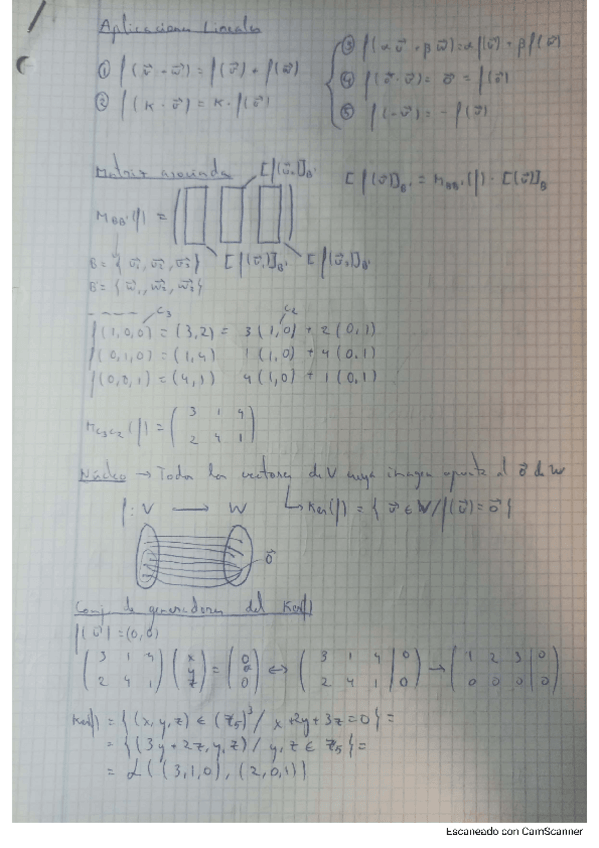 Aplicaciones Lineales
① f(v⃗ + w⃗) = f(v⃗) + f(w⃗)
② f(k · v⃗) = k · f(v⃗)
③ f(α v⃗ + β w⃗) = α f(v⃗) + β f(w⃗)
④ f(v⃗ - v⃗) = 0⃗ = f(0⃗)
⑤ f(-v⃗) = - f(v⃗)
Matriz asociada
[f(v⃗₂)]B'
[f(v⃗)]B' = MBB'(f) · [(v⃗)]B
MBB'(f) =
B = { v⃗₁, v⃗₂, v⃗₃ }
[f(v⃗₁)]B' [f(v⃗₃)]B'
B' = { w⃗₁, w⃗₂, w⃗₃ }
C₃ C₂
f(1,0,0) = (3,2) = 3(1,0) + 2(0,1)
f(0,1,0) = (1,4) 1(1,0) + 4(0,1)
f(0,0,1) = (4,1) 4(1,0) + 1(0,1)
MC₃C₂(f) = ( 3 1 4
2 4 1 )
Núcleo → Todos los vectores de V cuya imagen apunta al 0⃗ de W
f: V → W
Ker(f) = { v⃗ ∈ V / f(v⃗) = 0⃗ }
0⃗
Conj. de generadores del Ker(f)
f(v⃗) = (0,0)
( 3 1 4 ) ( x y z ) = ( 0 0 0 ) ↔ ( 3 1 4 | 0 ) → ( 1 2 3 | 0 )
( 2 4 1 ) ( 2 4 1 | 0 ) ( 0 0 0 | 0 )
Ker(f) = { (x, y, z) ∈ (Z₅)³ / x + 2y + 3z = 0 } =
= { (3y + 2z, y, z) / y, z ∈ Z₅ } =
= L ( (3,1,0), (2,0,1) )
Escaneado con CamScanner